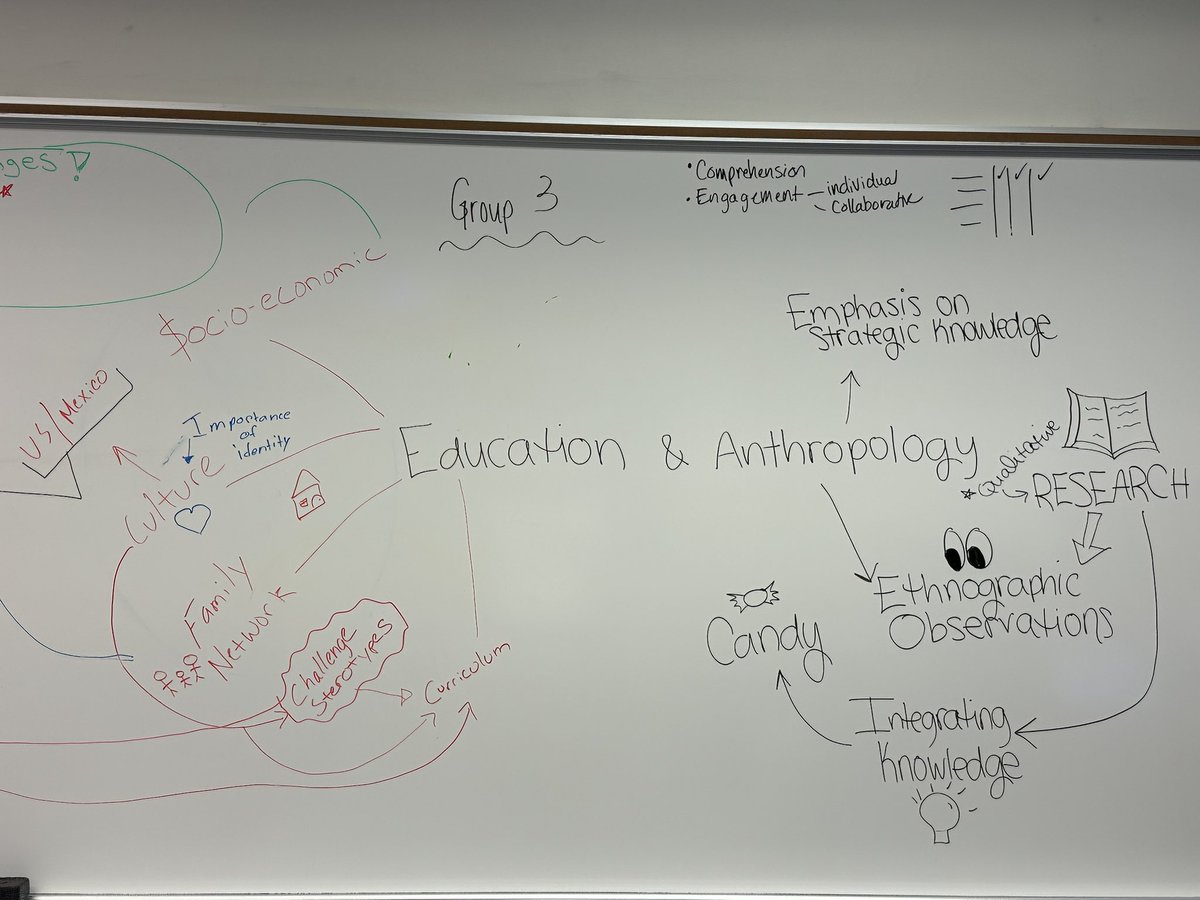 Group 3
• Comprehension
• Engagement – individual
– Collaborative
$ocio-economic
US/Mexico
Importance
of
identity
Culture
Family
Network
Challenge
Sterotypes
Curriculum
Education & Anthropology
Emphasis on
Strategic Knowledge
Qualitative
RESEARCH
Ethnographic
Observations
Candy
Integrating
Knowledge